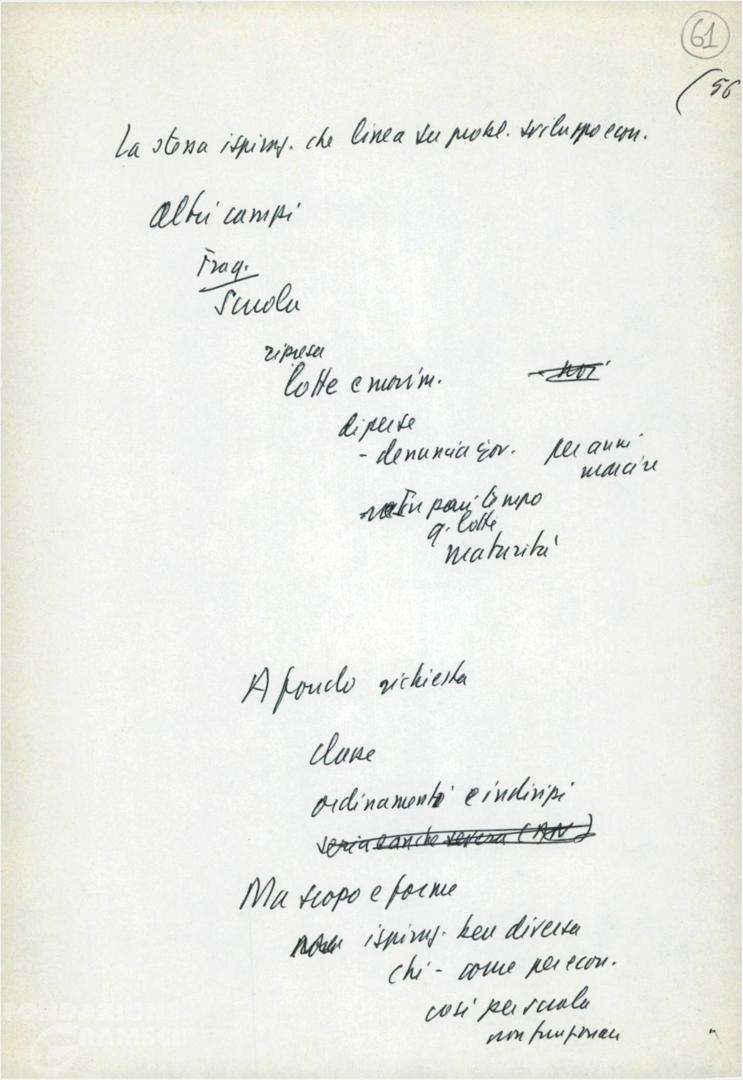 61
(56
La stessa ispiraz. che linea su probl. sviluppo econ.
Altri campi
Scuola
ripresa
lotte e movim.
disperse
- denuncia gov. per anni
marcire
in pari tempo
q. lotte
maturità
A fondo richiesta
classe
ordinamenti e indirizzi
seria e anche severa (AN)
Ma scopo e forme
ispiraz. ben diversa
chi - come per econ.
così per scuola
non funzionari
FONDAZIONE
GRAMSCI